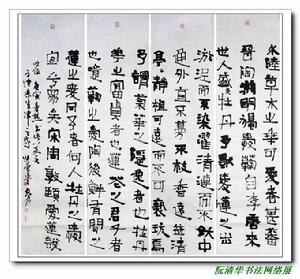 水陸草木之花可愛者甚蕃
晉陶淵明獨愛菊自李唐來
世人盛愛牡丹予獨愛蓮之出
淤泥而不染濯清漣而不妖中
通外直不蔓不枝香遠益清
亭亭淨植可遠觀而不可褻玩焉
予謂菊華之隱逸者也牡丹
華之富貴者也蓮花之君子者
也噫菊之愛陶後鮮有聞
蓮之愛同予者何人牡丹之愛
宜乎眾矣宋周敦頤愛蓮說
阮清华书法网络展